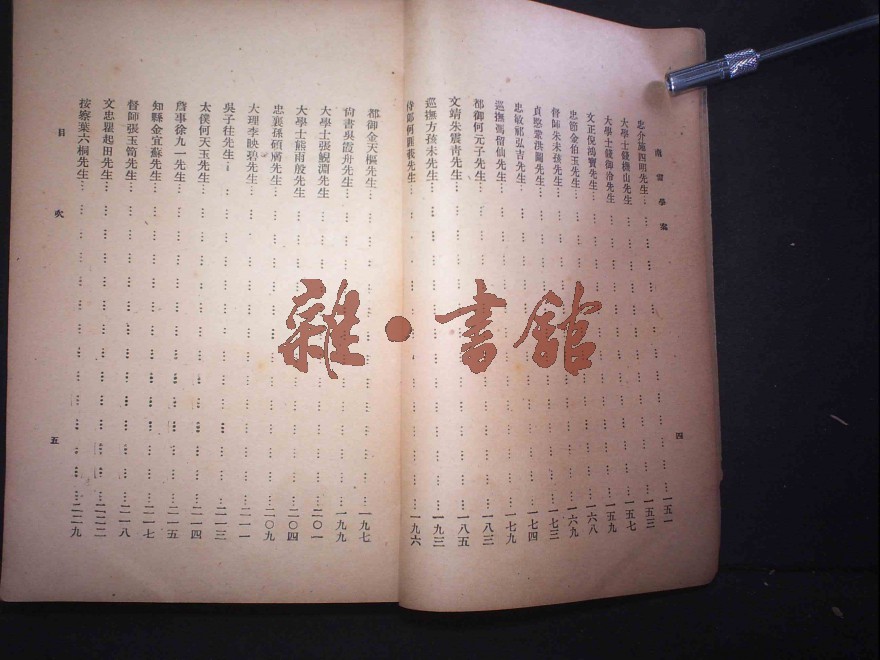 南雷學案
四
忠介施四明先生……一五一
大學士錢機山先生……一五三
大學士錢御冷先生……一五七
文正倪鴻寶先生……一五九
忠節金伯玉先生……一六八
督師朱未孩先生……一六九
貞愍章洪圖先生……一七三
忠敏祁弘吉先生……一七四
巡撫馮留仙先生……一七九
都御何元子先生……一八三
文靖朱震青先生……一八五
巡撫方孩未先生……一九三
侍郎何匪莪先生……一九六
都御金天樞先生……一九七
尚書吳霞舟先生……一九九
大學士張鯢淵先生……二〇一
大學士熊雨殷先生……二〇四
忠襄孫碩膚先生……二〇九
大理李映碧先生……二一一
吳子佳先生……二一三
太僕何天玉先生……二一四
詹事徐九一先生……二一五
知縣金宜蘇先生……二一七
督師張玉笥先生……二一八
文忠瞿起田先生……二二二
按察葉六桐先生……二二九
目次
五
雜•書館